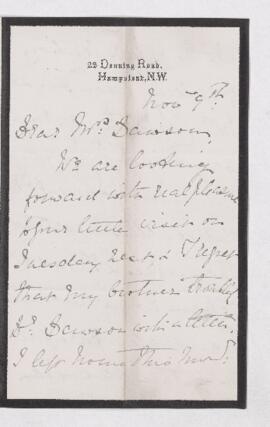 22 Denning Road,
Hampstead, N.W.
Nov 9th.
Dear Mrs Dawson,
We are looking
forward with real pleasure
to your little visit on
Tuesday next & I regret
that my brother
Dr. Dawson with a letter.
I left home this